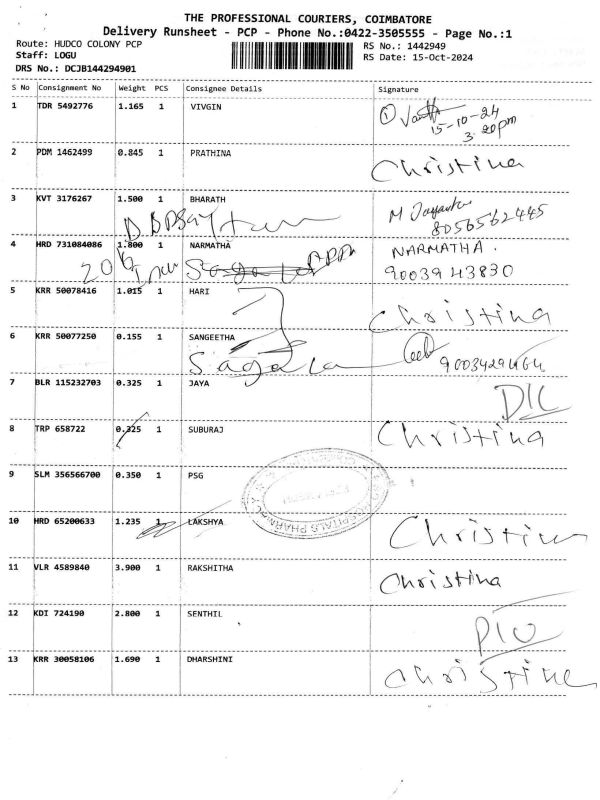 THE PROFESSIONAL COURIERS, COIMBATORE
Delivery Runsheet - PCP - Phone No.:0422-3505555 - Page No.:1
Route: HUDCO COLONY PCP
RS No.: 1442949
Staff: LOGU
RS Date: 15-Oct-2024
DRS No.: DCJB144294901
S No Consignment No Weight PCS Consignee Details Signature
1 TDR 5492776 1.165 1 VIVGIN
15-10-24
3.20pm
2 PDM 1462499 0.845 1 PRATHINA Christina
3 KVT 3176267 1.500 1 BHARATH
8056562445
4 HRD 731084086 1.800 1 NARMATHA NARMATHA.
9003943830
5 KRR 50078416 1.015 1 HARI Christina
6 KRR 50077250 0.155 1 SANGEETHA
7 BLR 115232703 0.325 1 JAYA
8 TRP 658722 0.325 1 SUBURAJ Christina
9 SLM 356566700 0.350 1 PSG
10 HRD 65200633 1.235 1 LAKSHYA Christina
11 VLR 4589840 3.900 1 RAKSHITHA Christina
12 KDI 724190 2.800 1 SENTHIL
13 KRR 30058106 1.690 1 DHARSHINI Christine